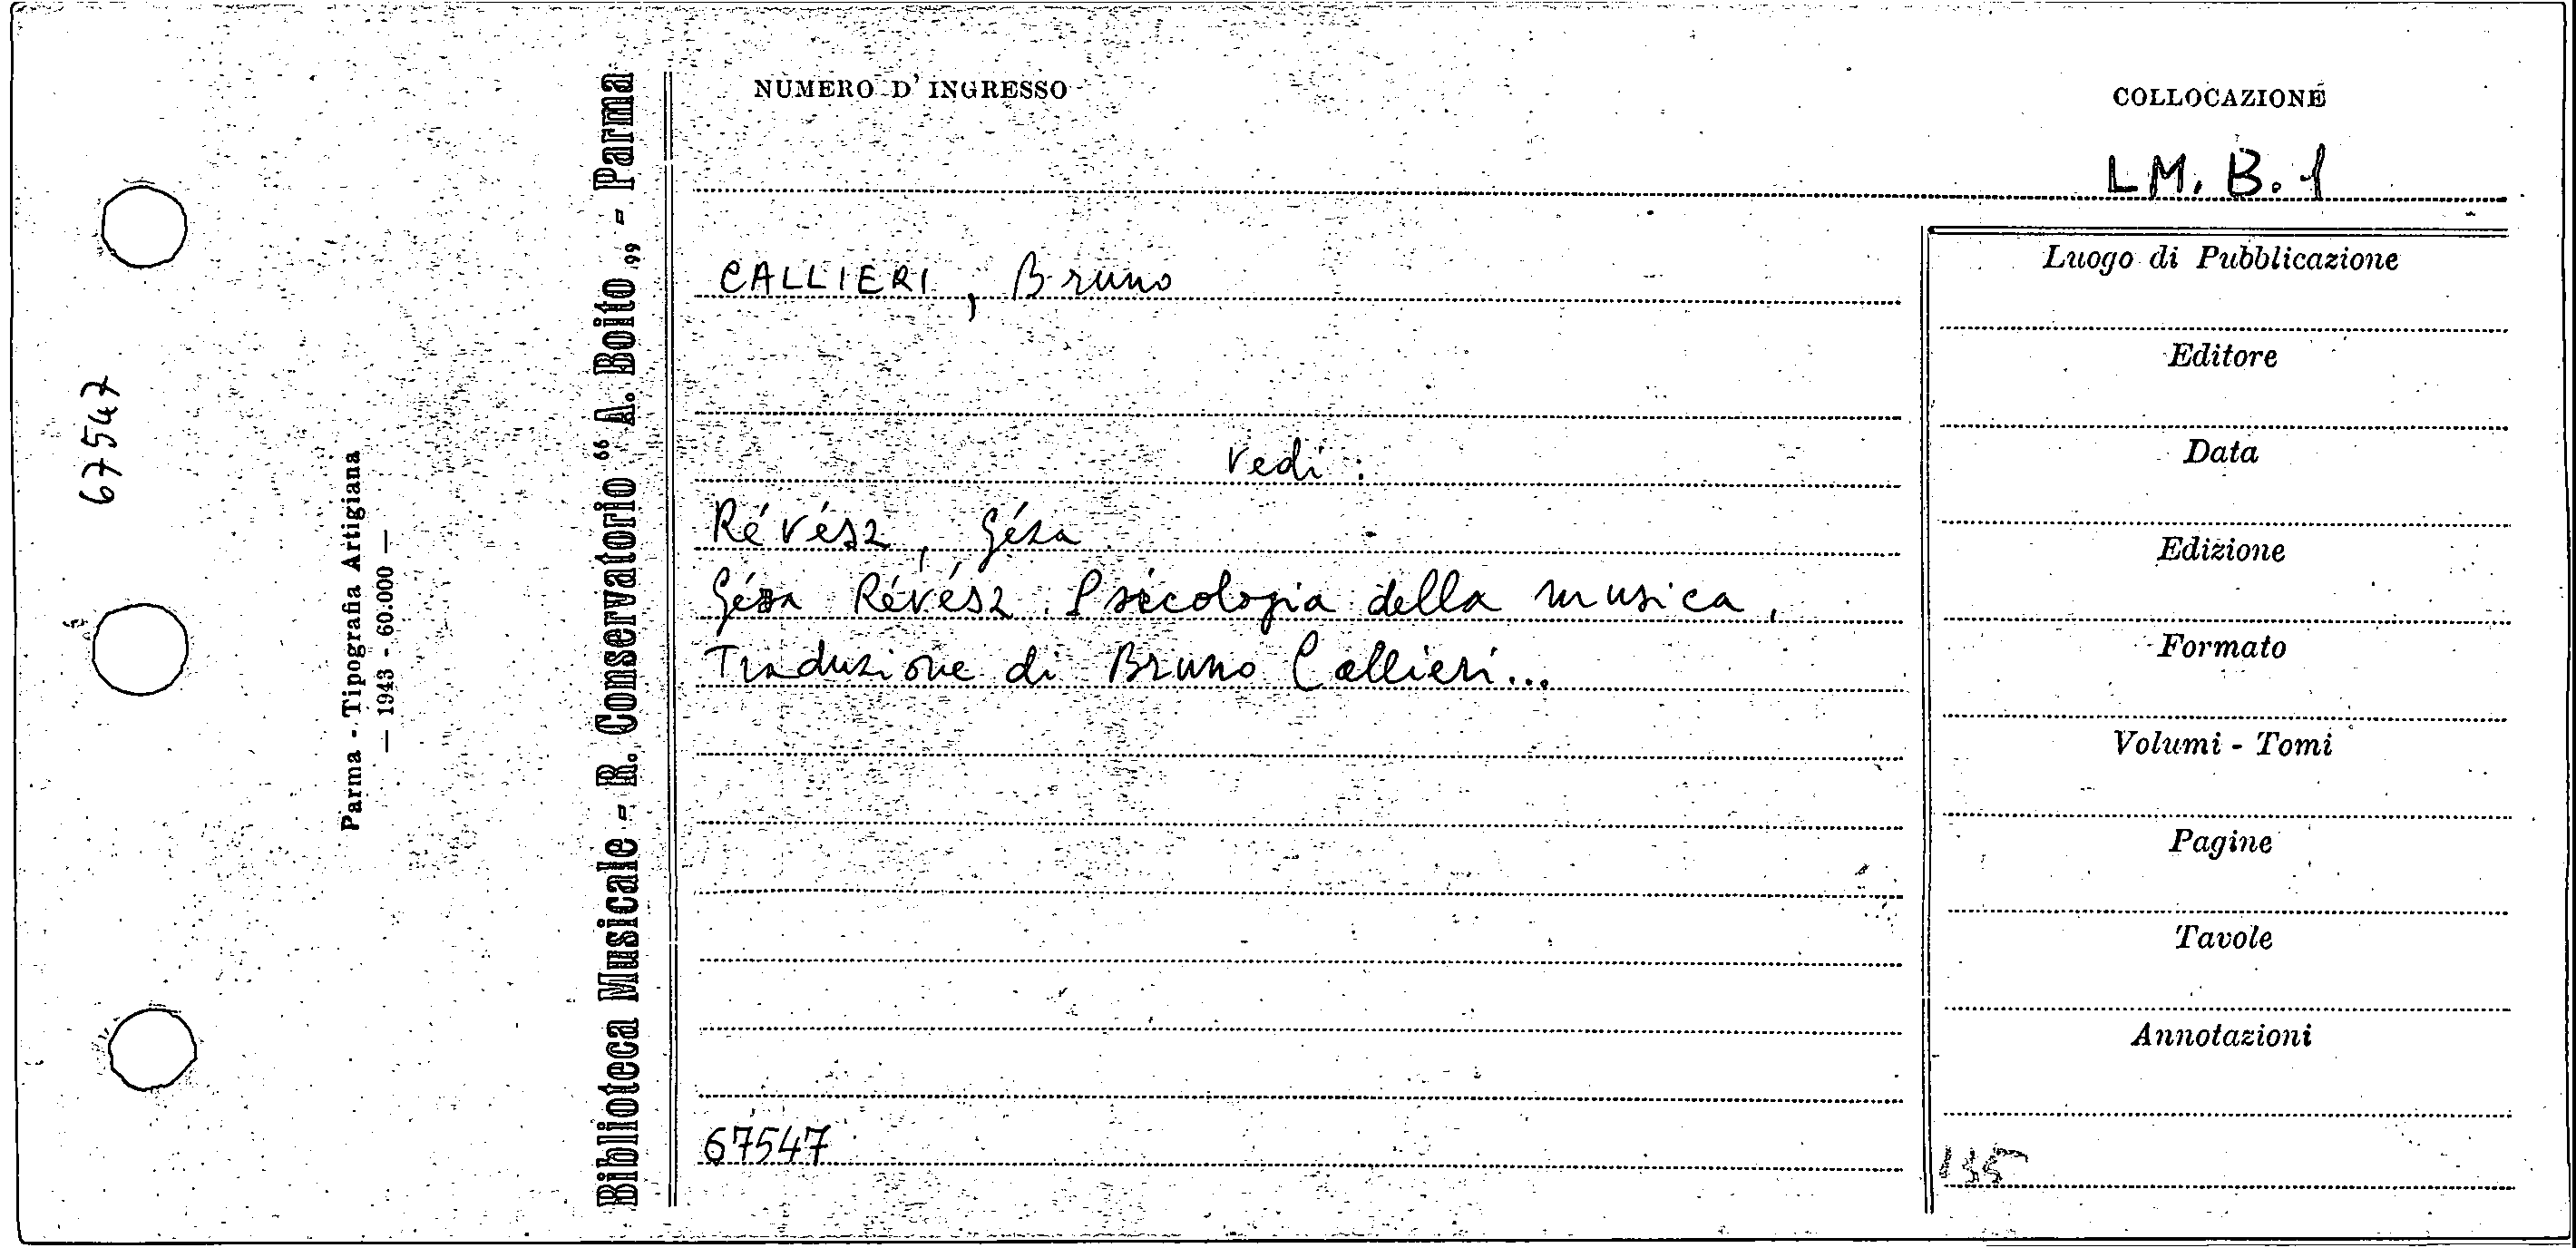 67547
Parma - Tipografia Artigiana
— 1943 - 60.000 —
Biblioteca Musicale - R. Conservatorio “ A. Boito „ - Parma
NUMERO D' INGRESSO
COLLOCAZIONE
LM. B. 1
CALLIERI, Bruno
vedi:
Révész, Géza
Géza Révész. Psicologia della musica.
Traduzione di Bruno Callieri...
67547
Luogo di Pubblicazione
Editore
Data
Edizione
Formato
Volumi - Tomi
Pagine
Tavole
Annotazioni
135